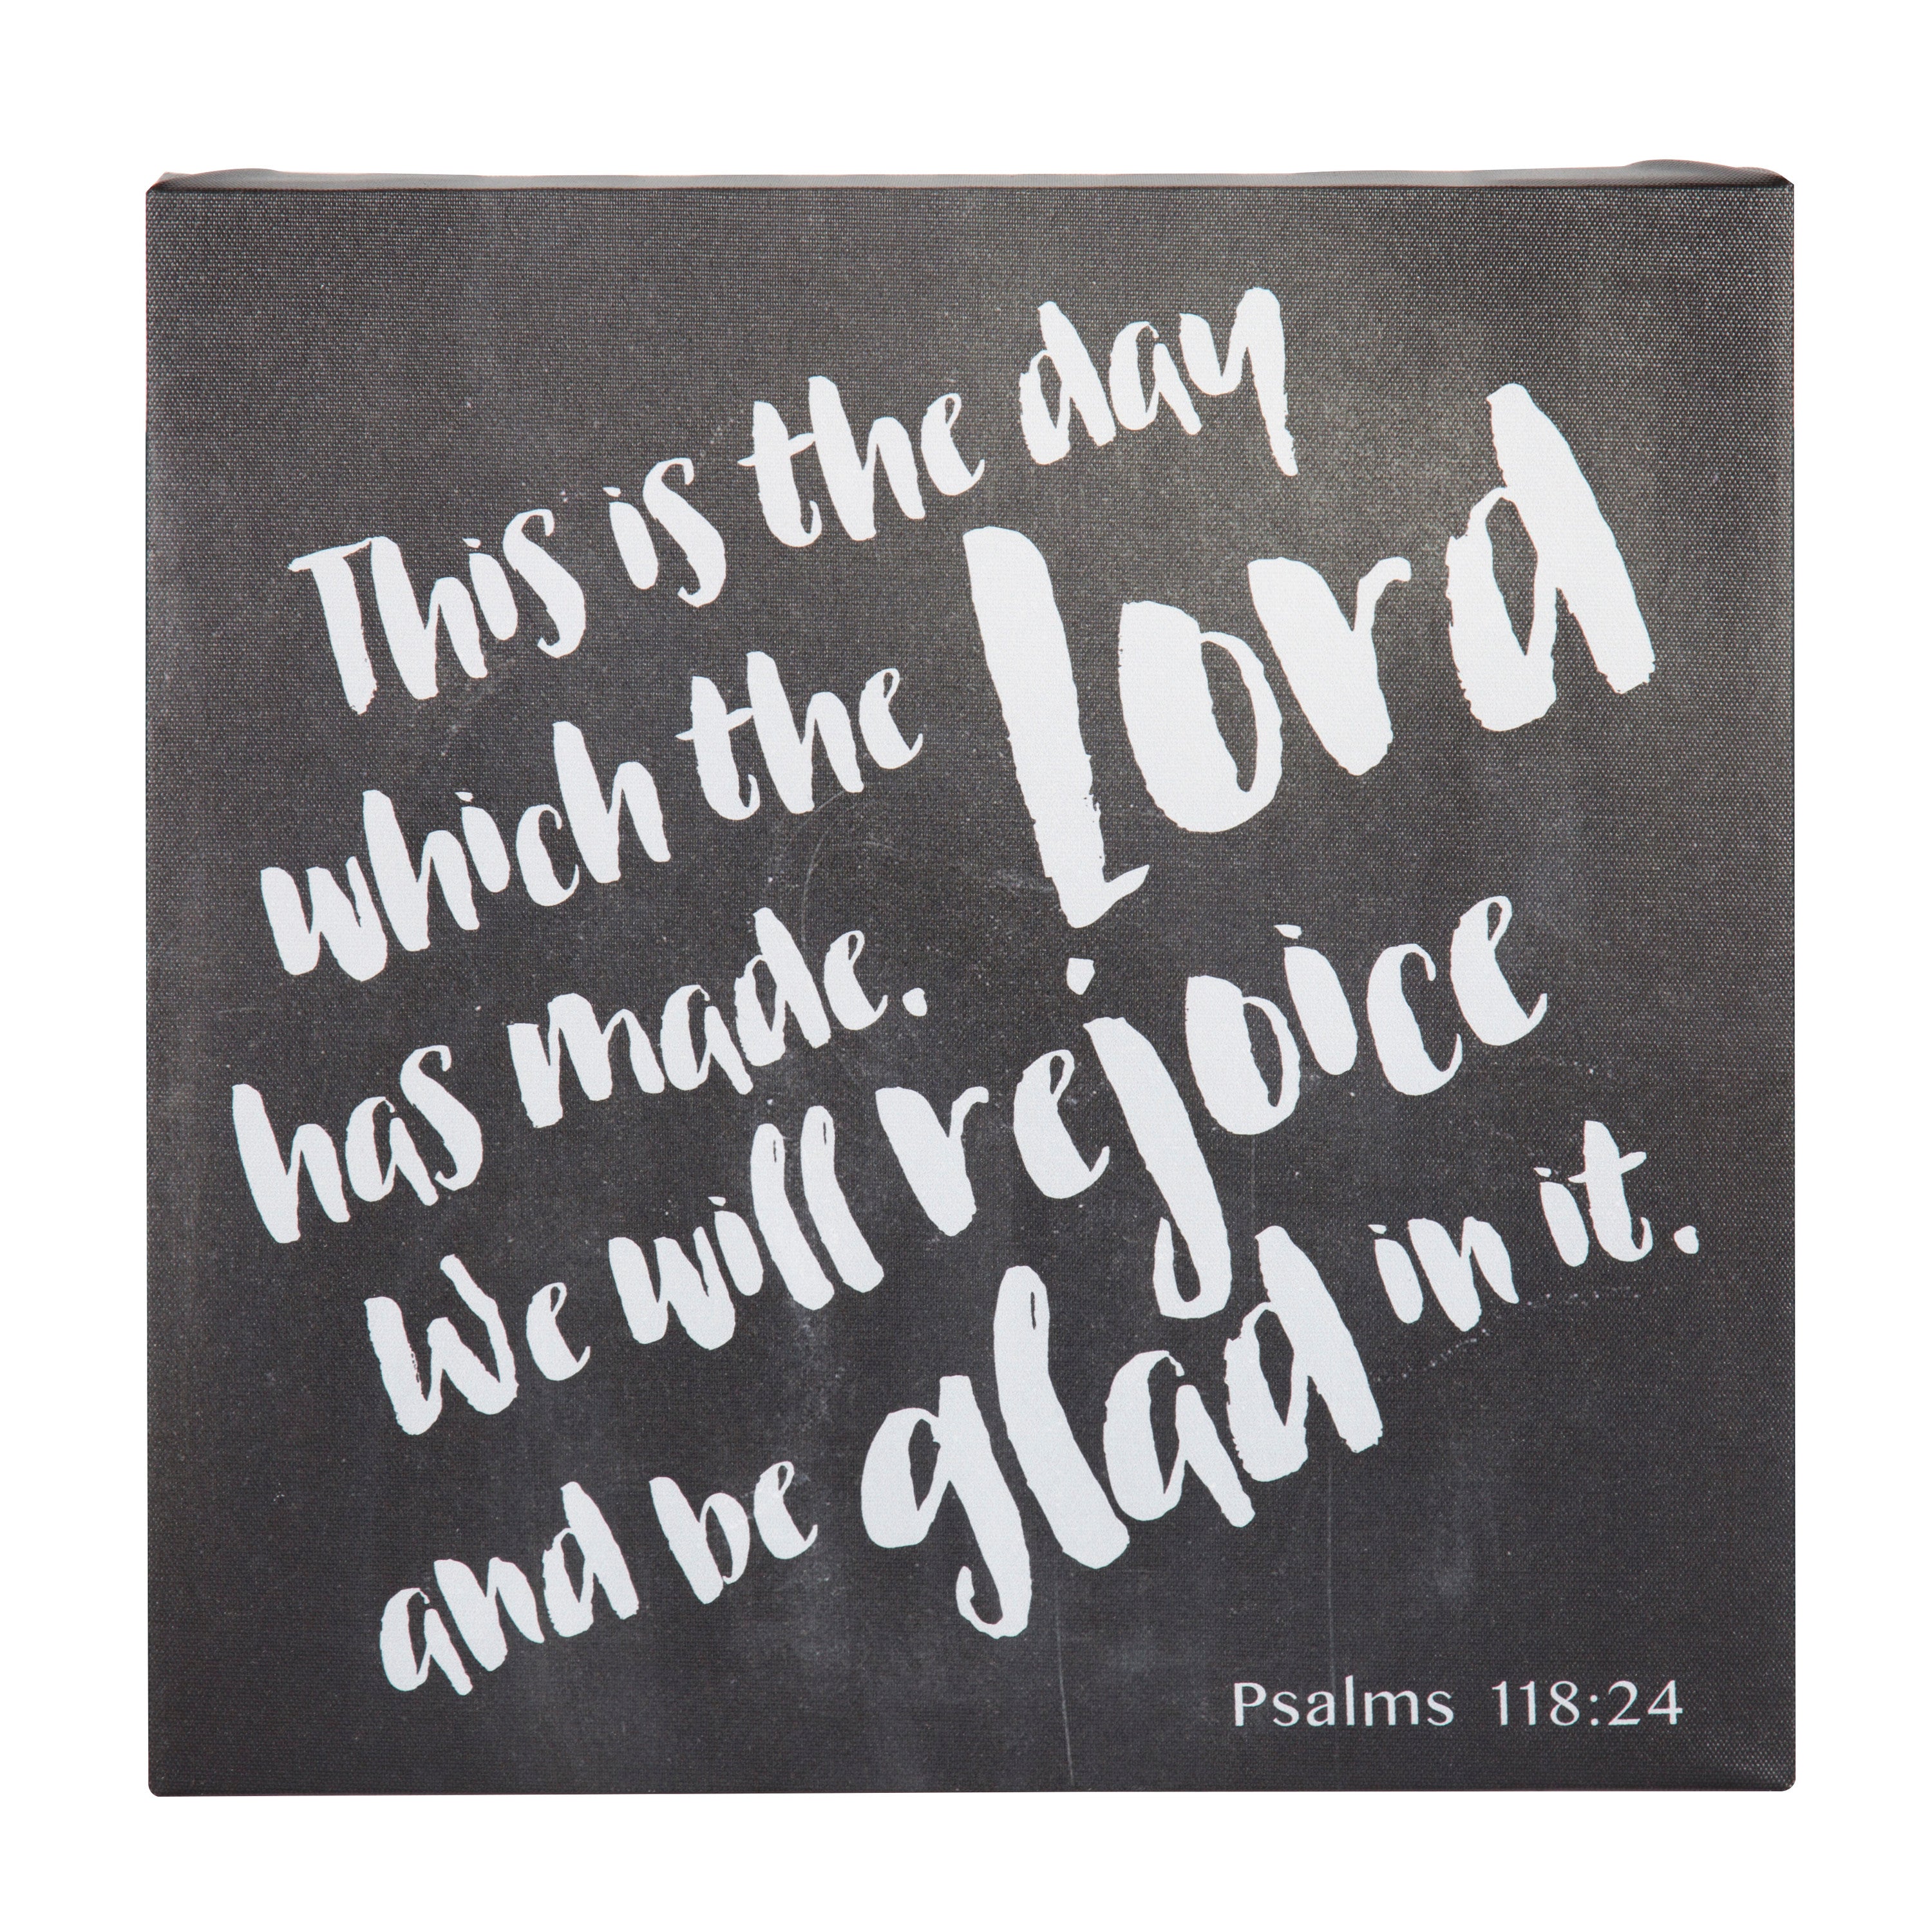 This is the day
which the Lord
has made.
We will rejoice
and be glad in it.
Psalms 118:24